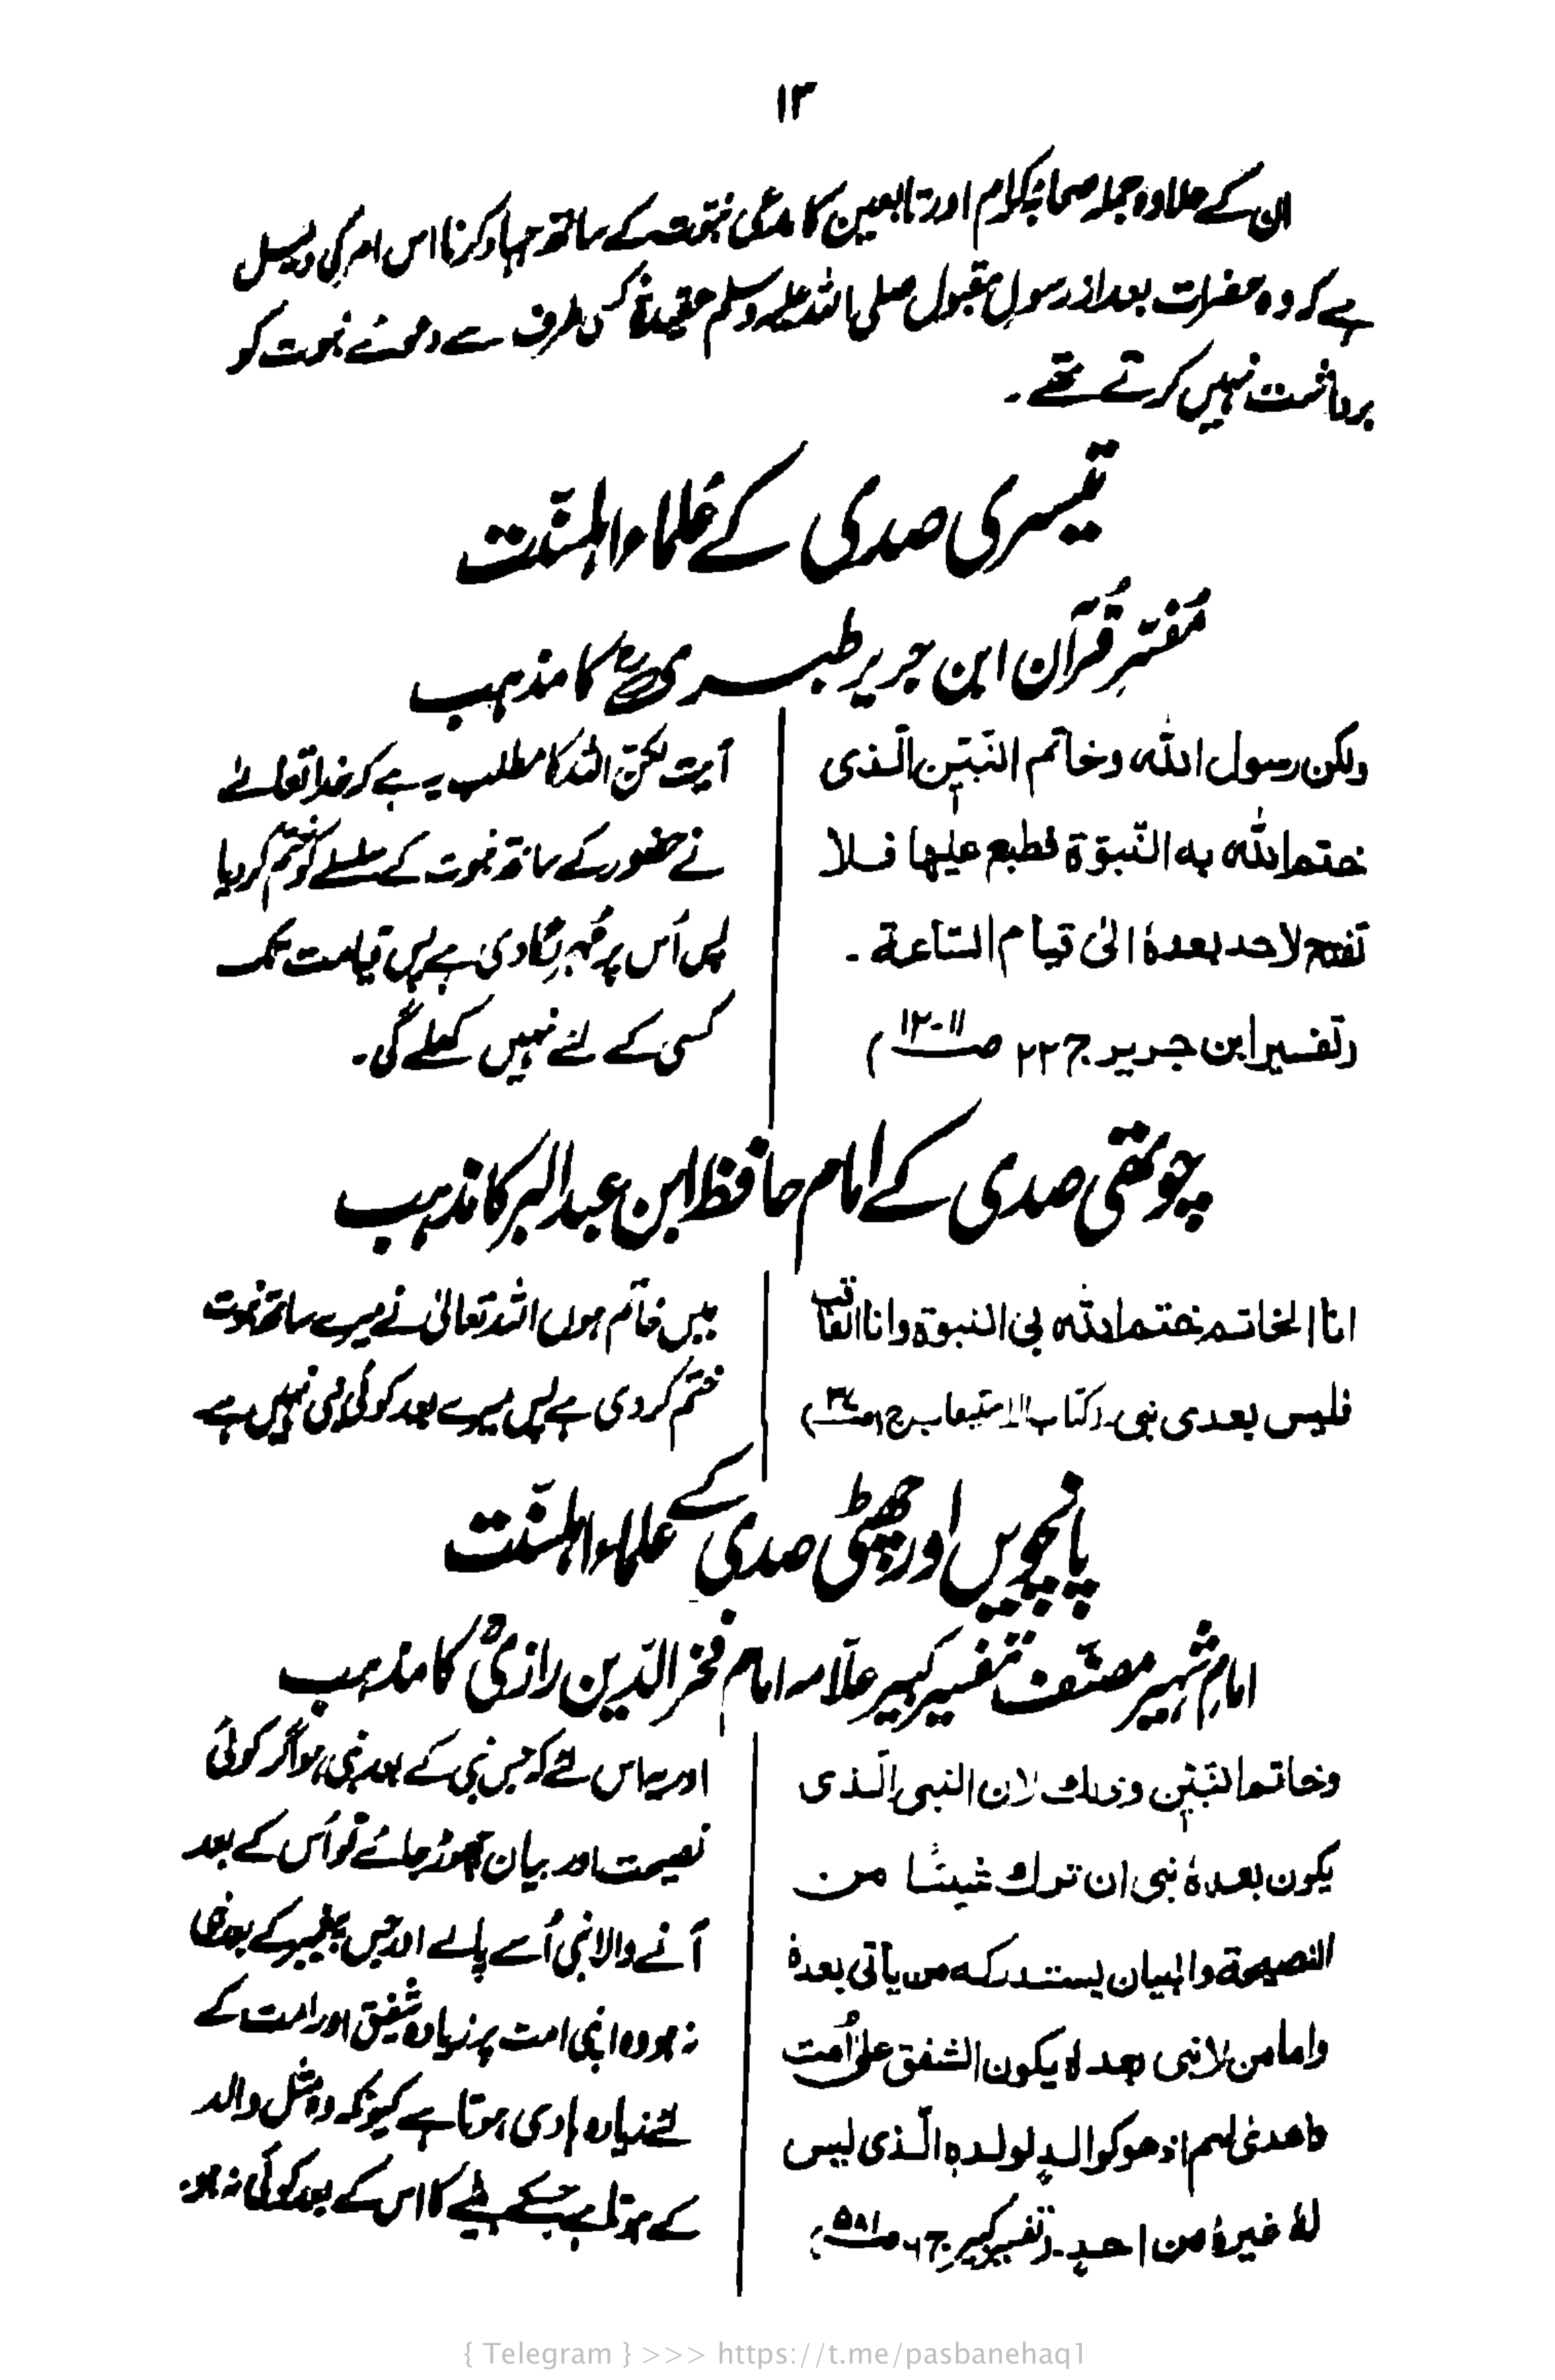 ۱۳
ان کے علاوہ جملہ صحابہ کرام اور تابعین کا مدعی نبوت کے ساتھ جہاد کرنا اس امر کی دلیل
ہے کہ وہ حضرات بعد از رسول مقبول صلی اللہ علیہ وسلم حقیقۃً کسی طرف سے دعوئے نبوت کو
برداشت نہیں کرتے تھے۔
تیسری صدی کے عُلماء اہلسنّت
مُفسّرِ قُرآن ابن جریر طبری رح کا مذہب
ولکن رسول اللہ وخاتم النّبیّن الّذی
ختم اللہ بہ النّبوّة فطبع علیہا فلا
تفتح لاحد بعدہٗ الیٰ قیام السّاعة ۔
(تفسیر ابن جریر ج ۲۲ صـ ۱۱-۱۲)
آیت لکن اللہ کا مطلب یہ ہے کہ خدا تعالےٰ
نے حضور کے ساتھ نبوت کے سلسلے کو ختم کر دیا
پس اُس پر مُہر لگا دی ہے پس قیامت تک
کسی کے لئے نہیں کھلے گی۔
چوتھی صدی کے امام حافظ ابن عبدالبر کا مذہب
انا الخاتم ختم اللہ بی النبوة وانا العاقب
فلیس بعدی نبی (کتاب الاستیعاب ج۱ صـ)
میں خاتم ہوں اللہ تعالیٰ نے میرے ساتھ نبوت
ختم کر دی ہے پس میرے بعد کوئی نبی نہیں ہے
پانچویں اور چھٹی صدی کے علماء اہلسنّت
امامِ شہیر مصنّف تفسیر کبیر علّامہ امام فخر الدّین رازیؒ کا مذہب
وخاتم النّبیّن وذلك لان النبی الّذی
یکون بعدہٗ نبی ان ترك شیئًا من
النصیحة والبیان یستدرکہ من یأتی بعدہٗ
واما من لا نبی بعدہ یکون اشفق علیٰ اُمت
واھدیٰ لہم اذ ھو کوالدٍ لولدہٖ الّذی لیس
لہٗ غیرہٗ من احدٍ۔ (تفسیر کبیر ج ۶ صـ ۵۸۱)
اور یہ اس لئے کہ جس نبی کے بعد نبی ہو اگر کوئی
نصیحت اور بیان چھوڑ جائے تو اُس کے بعد
آنے والا نبی اُسے پالے اور جس پیغمبر کے بعد نبی
نہ ہو وہ اپنی امت پر زیادہ شفیق اور امت کے
لئے زیادہ ہادی ہوتا ہے کیونکہ وہ مثل والد
کے ہوتا ہے جسکے بیٹے کا اس کے بعد کوئی نہ ہو۔
{ Telegram } >>> https://t.me/pasbanehaq1